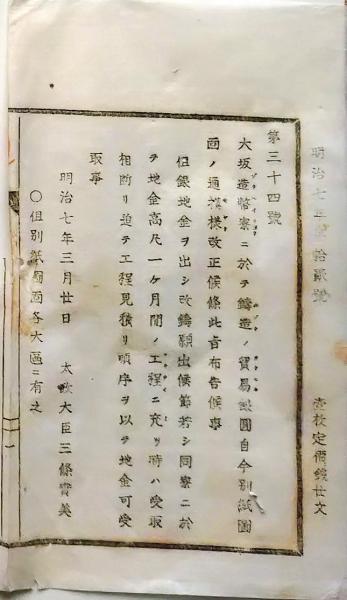 明治七年第拾
壹枚定價錢廿文
第三十四號
大坂造幣寮ニ於テ鑄造ノ貿易銀圓自今別紙圖
面ノ通摸樣改正候條此旨布告候事
但銀地金ヲ出シ改鑄願出候節若シ同寮ニ於
テ地金高凡一ケ月間ノ工程ニ充ツ時ハ受取
相斷リ追テ工程見積リ順序ヲ以テ地金可受
取事
明治七年三月廿日 太政大臣三條實美
〇但別紙圖面各大區ニ有之